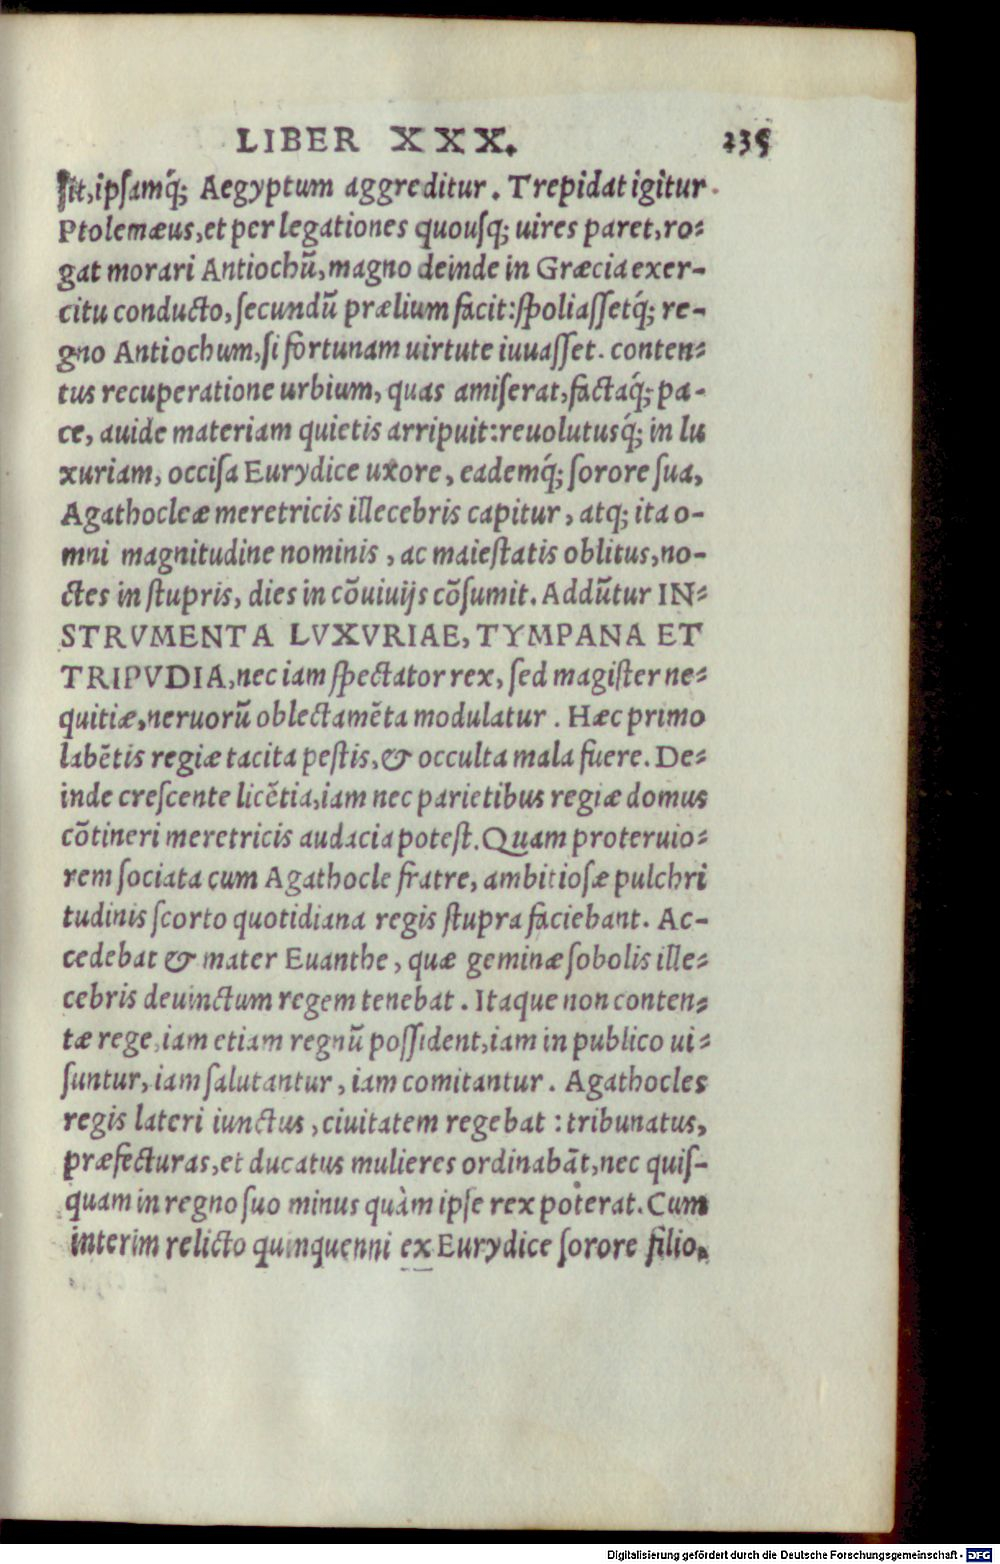 LIBER XXX. 235
ſit, ipſamq́; Aegyptum aggreditur. Trepidat igitur
Ptolemæus, et per legationes quouſq; uires paret, ro-
gat morari Antiochũ, magno deinde in Græcia exer-
citu conducto, ſecundũ prælium facit: ſpoliaſſetq́; re-
gno Antiochum, ſi fortunam uirtute iuuaſſet. conten-
tus recuperatione urbium, quas amiſerat, factaq́; pa-
ce, auide materiam quietis arripuit: reuolutusq́; in lu
xuriam, occiſa Eurydice uxore, eademq́; ſorore ſua,
Agathocleæ meretricis illecebris capitur, atq; ita o-
mni magnitudine nominis, ac maieſtatis oblitus, no-
ctes in ſtupris, dies in cõuiuijs cõſumit. Addũtur IN-
STRVMENTA LVXVRIAE, TYMPANA ET
TRIPVDIA, nec iam ſpectator rex, ſed magiſter ne-
quitiæ, neruorũ oblectamẽta modulatur. Hæc primo
labẽtis regiæ tacita peſtis, & occulta mala fuere. De-
inde creſcente licẽtia, iam nec parietibus regiæ domus
cõtineri meretricis audacia poteſt. Quam proteruio-
rem ſociata cum Agathocle fratre, ambitioſæ pulchri
tudinis ſcorto quotidiana regis ſtupra faciebant. Ac-
cedebat & mater Euanthe, quæ geminæ ſobolis ille-
cebris deuinctum regem tenebat. Itaque non conten-
tæ rege, iam etiam regnũ poſſident, iam in publico ui-
ſuntur, iam ſalutantur, iam comitantur. Agathocles
regis lateri iunctus, ciuitatem regebat: tribunatus,
præfecturas, et ducatus mulieres ordinabãt, nec quiſ-
quam in regno ſuo minus quàm ipſe rex poterat. Cum
interim relicto quinquenni ex Eurydice ſorore filio,
Digitalisierung gefördert durch die Deutsche Forschungsgemeinschaft - DFG